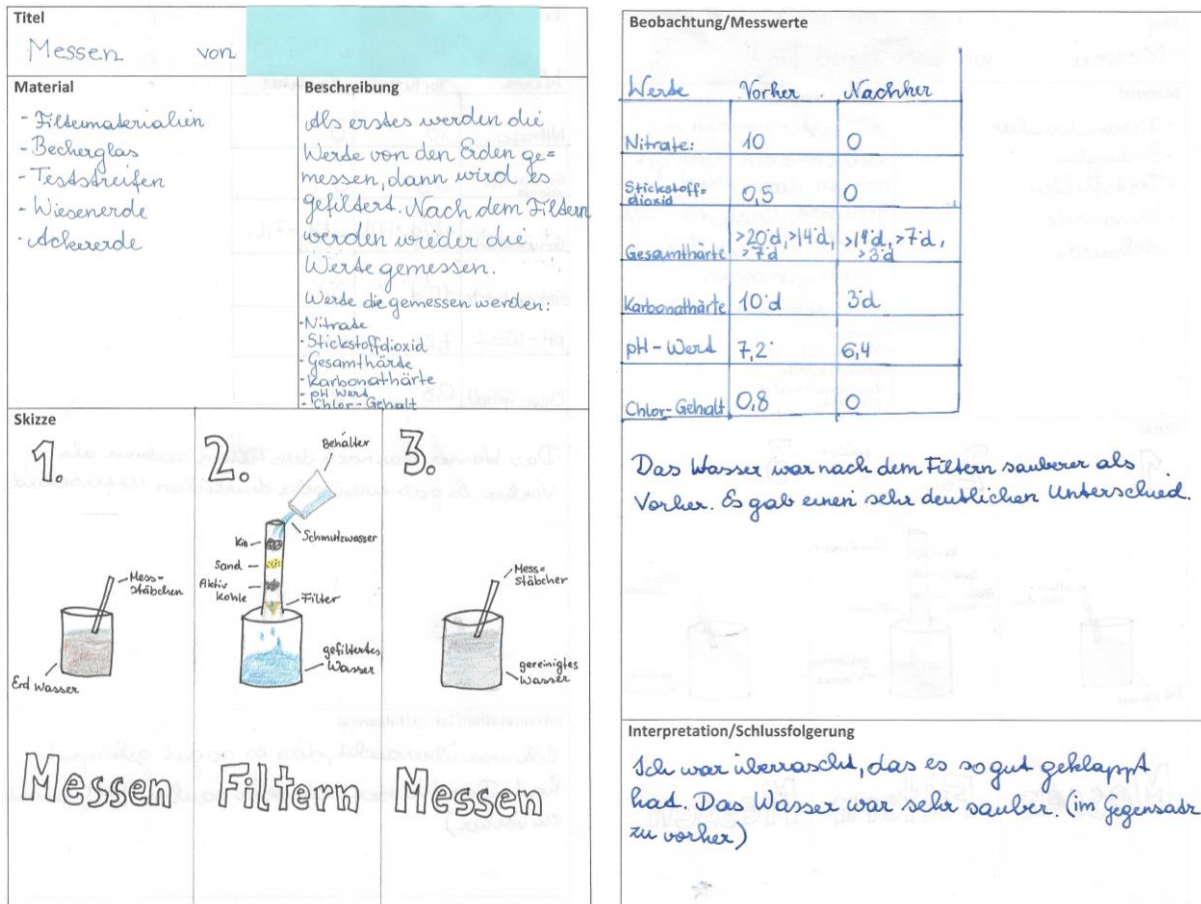 Titel
Messen von
Material
- Filtermaterialien
- Becherglas
- Teststreifen
- Wiesenerde
- Ackererde
Beschreibung
Als erstes werden die
Werte von den Erden ge=
messen, dann wird es
gefiltert. Nach dem Filtern
werden wieder die
Werte gemessen.
Werte die gemessen werden:
- Nitrate
- Stickstoffdioxid
- Gesamthärte
- Karbonathärte
- pH Wert
- Chlor-Gehalt
Skizze
1.
Mess=
stäbchen
Erd Wasser
Messen
2.
Behälter
Schmutzwasser
Kies
Sand
Aktiv
kohle
Filter
gefiltertes
Wasser
Filtern
3.
Mess=
stäbcher
gereinigtes
Wasser
Messen
Beobachtung/Messwerte
Werte Vorher Nachher
Nitrate: 10 0
Stickstoff=
dioxid 0,5 0
Gesamthärte >20°d, >14°d, >7°d >14°d, >7°d, >3°d
Karbonathärte 10°d 3°d
pH-Wert 7,2 6,4
Chlor-Gehalt 0,8 0
Das Wasser war nach dem Filtern sauberer als
Vorher. Es gab einen sehr deutlichen Unterschied.
Interpretation/Schlussfolgerung
Ich war überrascht, das es so gut geklappt
hat. Das Wasser war sehr sauber. (im gegensatz
zu vorher)